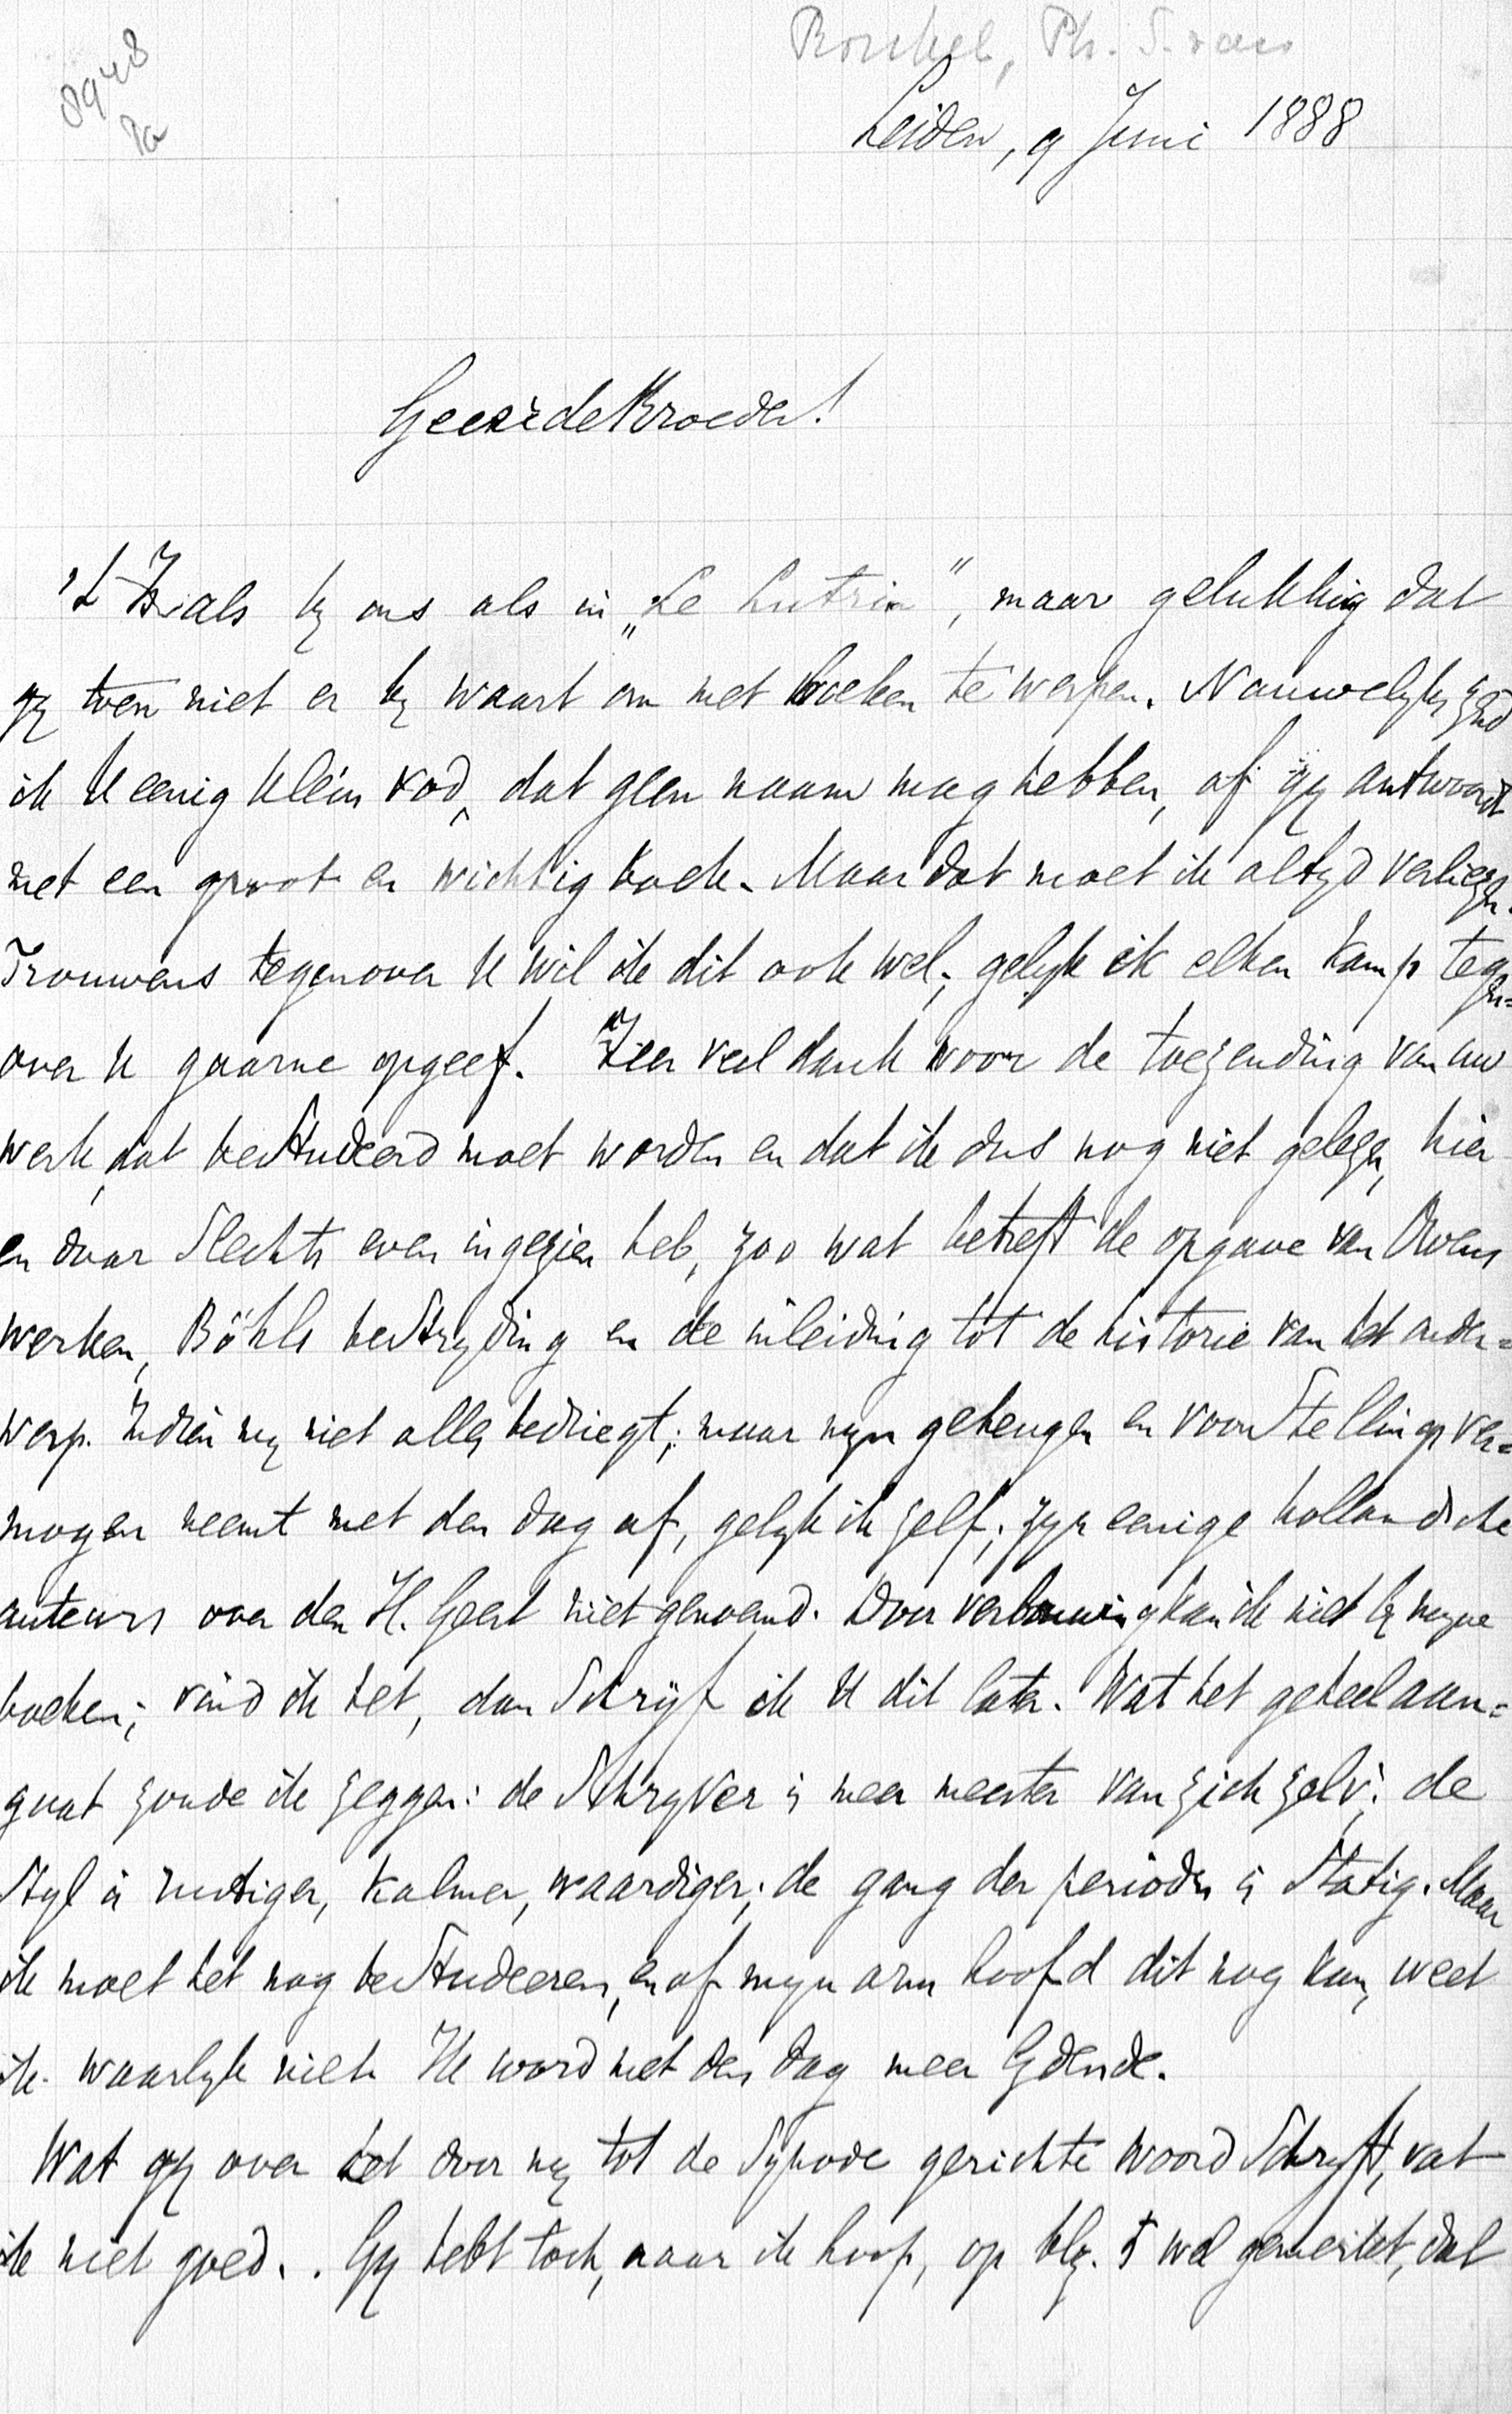 Ronkel, Ph. S. van
8948
Leiden, 9 Juni 1888
Geëerde Broeder!
't Is als bij ons als in „Le Lutrin", maar gelukkig dat
gij toen niet er bij waart om met boeken te werpen. Nauwelijks zend
ik U eenig klein vod, dat geen naam mag hebben, of gij antwoordt
met een groot en wichtig boek. Maar dat moet ik altijd verliezen.
Trouwens tegenover U wil ik dit ook wel; gelijk ik elken kamp tegen=
over U gaarne opgeef. Zeer veel dank voor de toezending van uw
werk, dat bestudeerd moet worden en dat ik dus nog niet gelezen, hier
en daar slechts even ingezien heb, zoo wat betreft de opgave van Owens
werken, Böhls bestrijding en de inleiding tot de historie van het onder=
werp. Indien mij niet alles bedriegt; maar mijn geheugen en voorstellingsver=
mogen neemt met den dag af, gelijk ik zelf; zijn eenige hollandsche
auteurs over den H. Geest niet genoemd. Door verbouwing kan ik niet bij mijne
boeken; vind ik het, dan schrijf ik U dit later. Wat het geheel aan=
gaat zoude ik zeggen: de schrijver is meer meester van zich zelv'; de
stijl is rustiger, kalmer, waardiger; de gang der perioden is statig. Maar
ik moet het nog bestudeeren, en of mijn arm hoofd dit nog kan, weet
ik waarlijk niet. Ik word met den dag meer lijdende.
Wat gij over het door mij tot de Synode gerichte woord schrijft, vat
ik niet goed. . Gij hebt toch, naar ik hoop, op blz. 5 wel gemerkt, dat